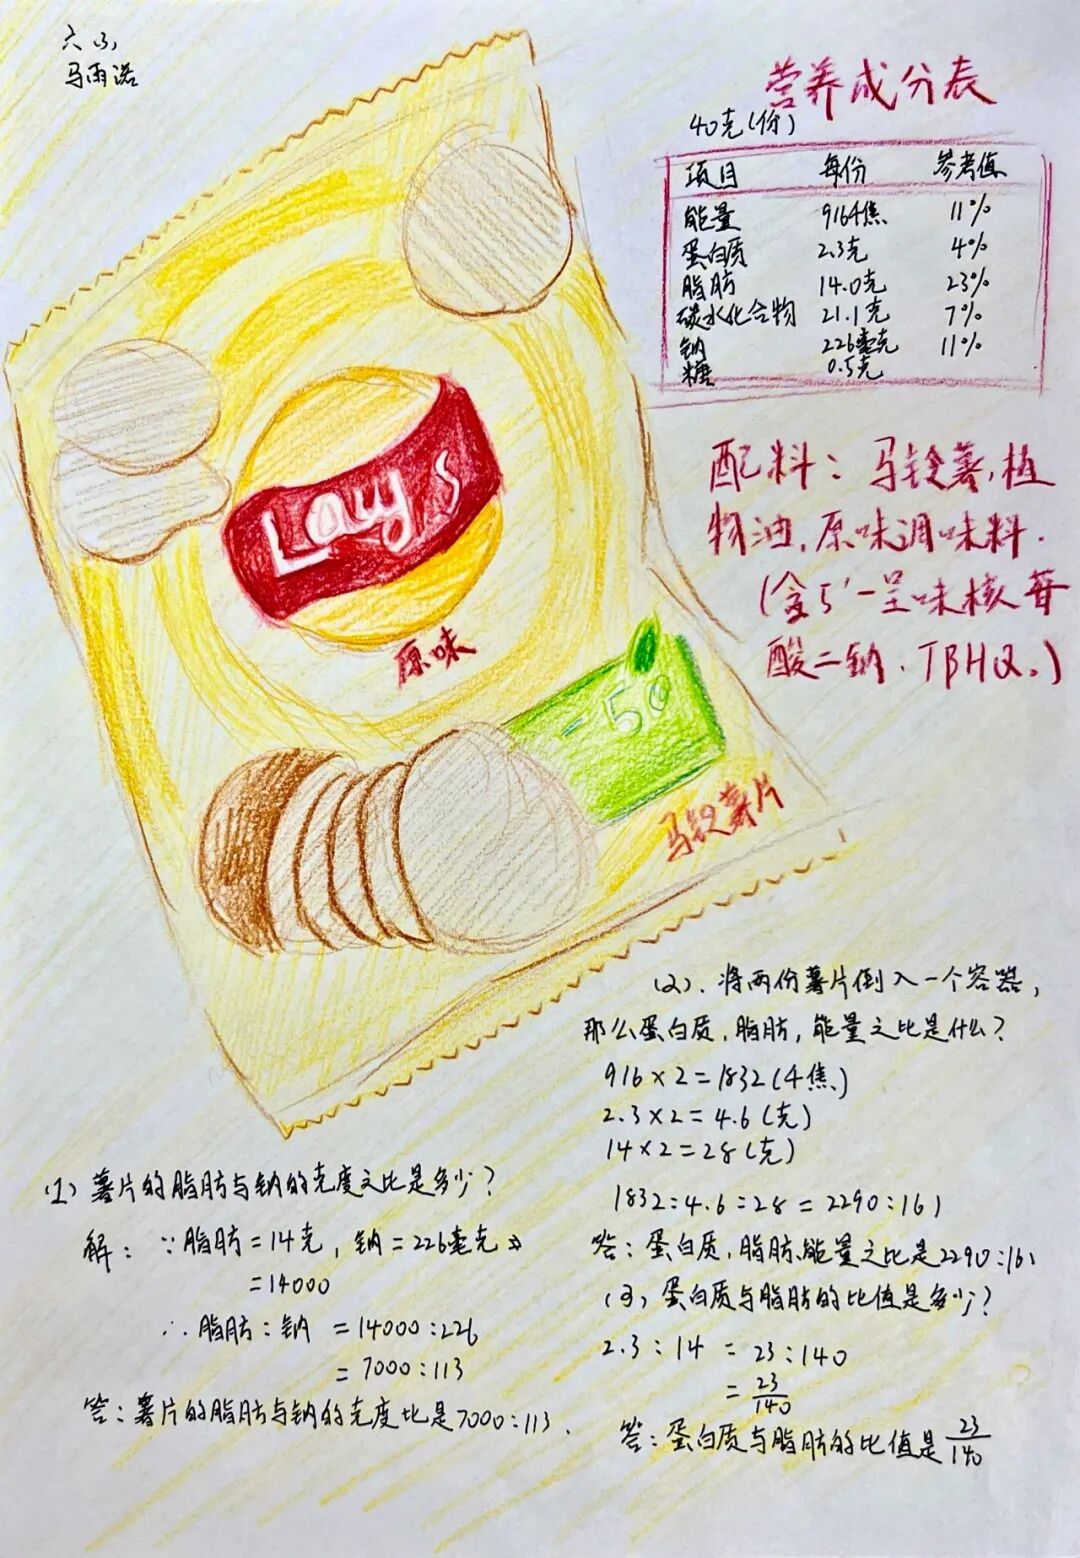 六(3)
马雨诺
营养成分表
40克(份)
项目 每份 参考值
能量 916千焦 11%
蛋白质 2.3克 4%
脂肪 14.0克 23%
碳水化合物 21.1克 7%
钠 226毫克 11%
糖 0.5克
配料：马铃薯，植
物油，原味调味料．
(含5'-呈味核苷
酸二钠．TBHQ。)
Lay's
原味
-50
马铃薯片
(1) 薯片的脂肪与钠的克度之比是多少？
解：∵脂肪=14克，钠=226毫克
=14000
∴脂肪：钠 =14000:226
=7000:113
答：薯片的脂肪与钠的克度比是7000:113．
(2)．将两份薯片倒入一个容器，
那么蛋白质，脂肪，能量之比是什么？
916×2=1832(千焦)
2.3×2=4.6(克)
14×2=28(克)
1832:4.6:28=2290:161
答：蛋白质，脂肪、能量之比是2290:161
(3)，蛋白质与脂肪的比值是多少？
2.3:14 = 23:140
= 23/140
答：蛋白质与脂肪的比值是23/140